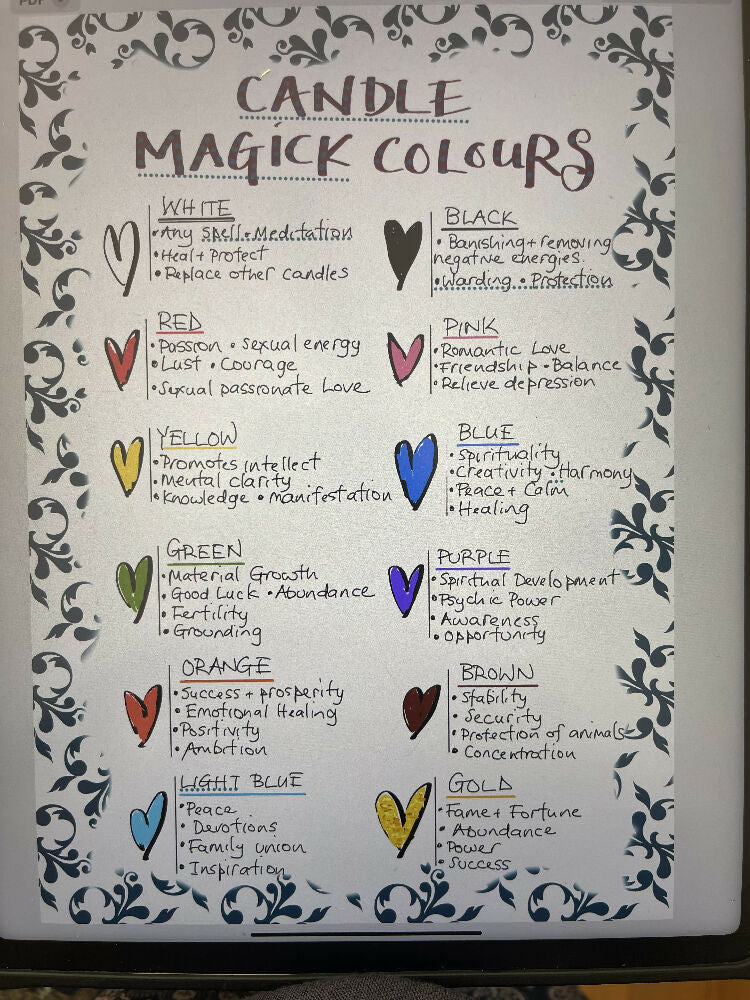 PDF
CANDLE
MAGICK COLOURS
WHITE
• Any Spell • Meditation
• Heal + Protect
• Replace other candles
BLACK
• Banishing + removing
negative energies.
• Warding • Protection
RED
• Passion • Sexual energy
• Lust • Courage
• Sexual passionate Love
PINK
• Romantic Love
• Friendship • Balance
• Relieve depression
YELLOW
• Promotes intellect
• Mental clarity
• Knowledge • manifestation
BLUE
• Spirituality
• Creativity • Harmony
• Peace + Calm
• Healing
GREEN
• Material Growth
• Good Luck • Abundance
• Fertility
• Grounding
PURPLE
• Spiritual Development
• Psychic Power
• Awareness
• Opportunity
ORANGE
• Success + prosperity
• Emotional Healing
• Positivity
• Ambition
BROWN
• Stability
• Security
• Protection of animals
• Concentration
LIGHT BLUE
• Peace
• Devotions
• Family union
• Inspiration
GOLD
• Fame + Fortune
• Abundance
• Power
• Success